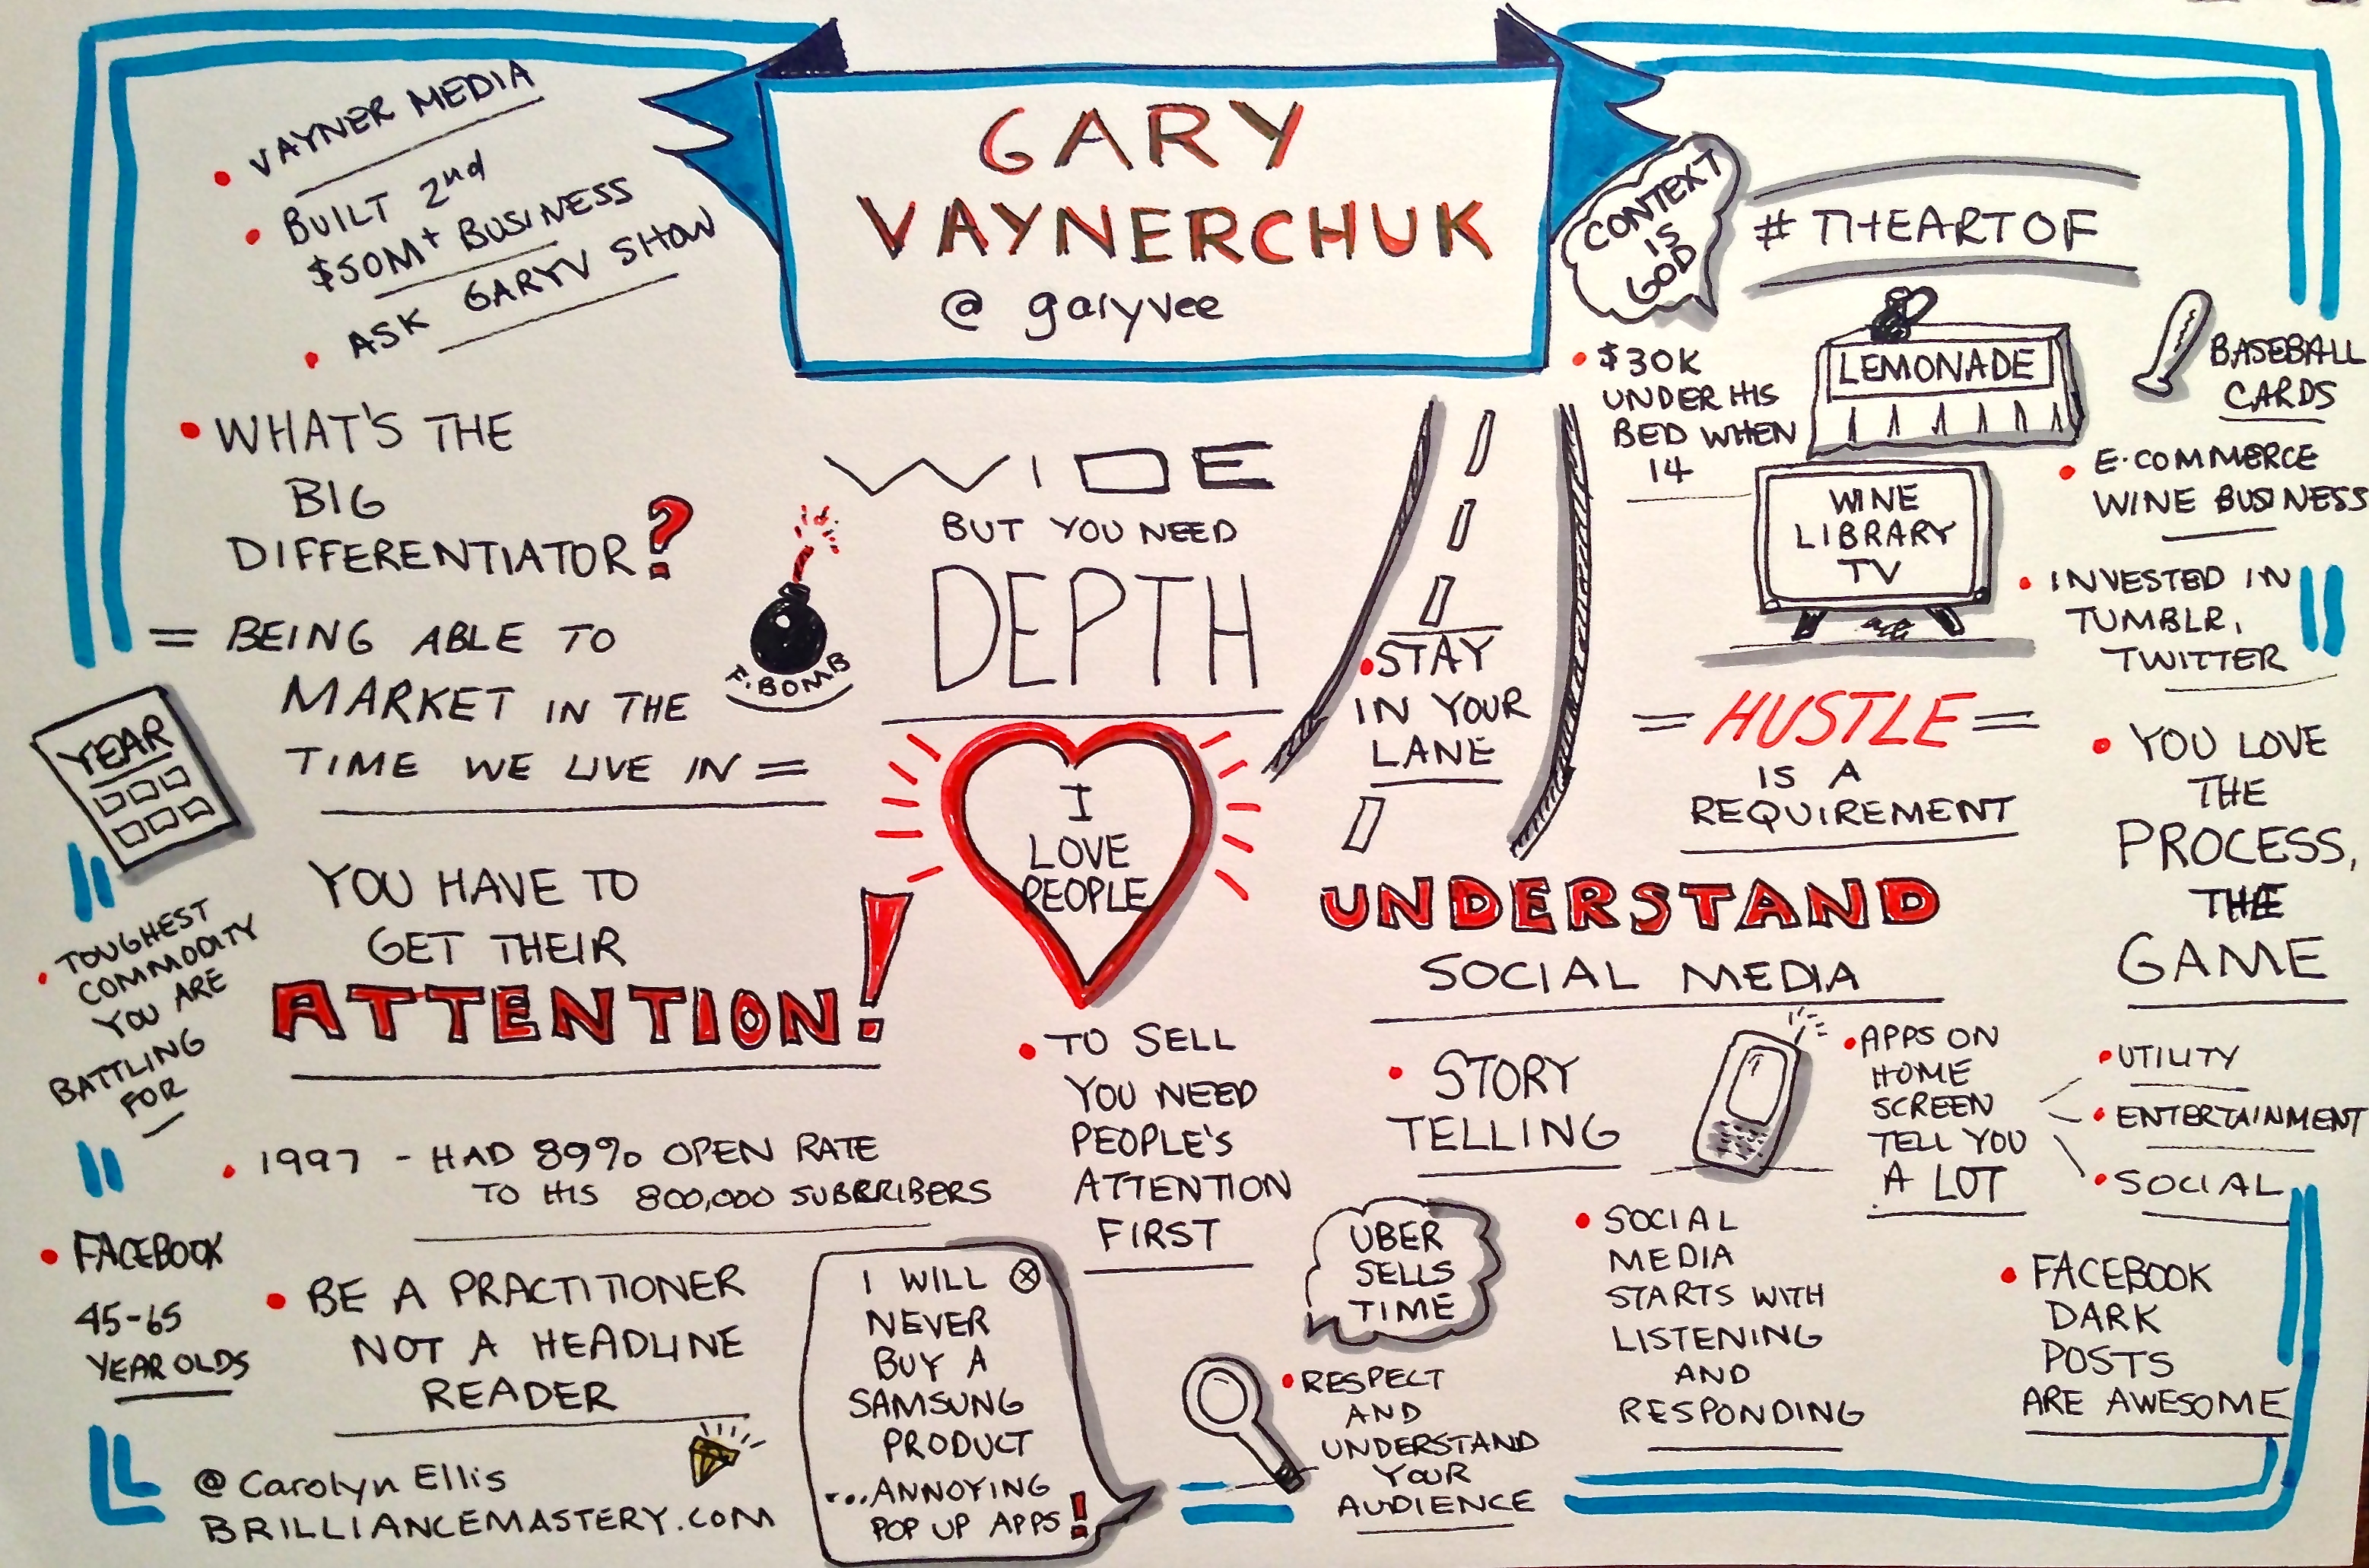 GARY
VAYNERCHUK
@garyvee
VAYNER MEDIA
BUILT 2nd
$50M+ BUSINESS
ASK GARYV SHOW
WHAT'S THE
BIG
DIFFERENTIATOR?
= BEING ABLE TO
MARKET IN THE
TIME WE LIVE IN =
F. BOMB
WIDE
BUT YOU NEED
DEPTH
STAY
IN YOUR
LANE
CONTEXT
IS
GOD
#THEARTOF
$30K
UNDER HIS
BED WHEN
14
LEMONADE
BASEBALL
CARDS
WINE
LIBRARY
TV
E-COMMERCE
WINE BUSINESS
INVESTED IN
TUMBLR,
TWITTER
= HUSTLE =
IS A
REQUIREMENT
YOU LOVE
THE
PROCESS,
THE
GAME
YEAR
TOUGHEST
COMMODITY
YOU ARE
BATTLING
FOR
YOU HAVE TO
GET THEIR
ATTENTION!
I
LOVE
PEOPLE
UNDERSTAND
SOCIAL MEDIA
TO SELL
YOU NEED
PEOPLE'S
ATTENTION
FIRST
STORY
TELLING
APPS ON
HOME
SCREEN
TELL YOU
A LOT
UTILITY
ENTERTAINMENT
SOCIAL
1997 - HAD 89% OPEN RATE
TO HIS 800,000 SUBRRIBERS
FACEBOOK
45-65
YEAR OLDS
BE A PRACTITIONER
NOT A HEADLINE
READER
I WILL
NEVER
BUY A
SAMSUNG
PRODUCT
...ANNOYING
POP UP APPS!
UBER
SELLS
TIME
RESPECT
AND
UNDERSTAND
YOUR
AUDIENCE
SOCIAL
MEDIA
STARTS WITH
LISTENING
AND
RESPONDING
FACEBOOK
DARK
POSTS
ARE AWESOME
@Carolyn Ellis
BRILLIANCEMASTERY.COM